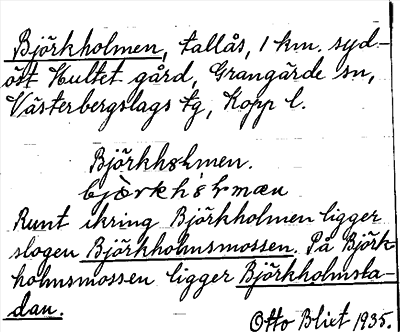 Björkholmen, tallås, 1 km. syd-
öst Hultet gård, Grangärde sn,
Västerbergslags tg, Kopp l.
Björkholmen.
Runt ikring Björkholmen ligger
slogen Björkholmsmossen. På Björk-
holmsmossen ligger Björkholmsla-
dan.
Otto Blixt 1935.